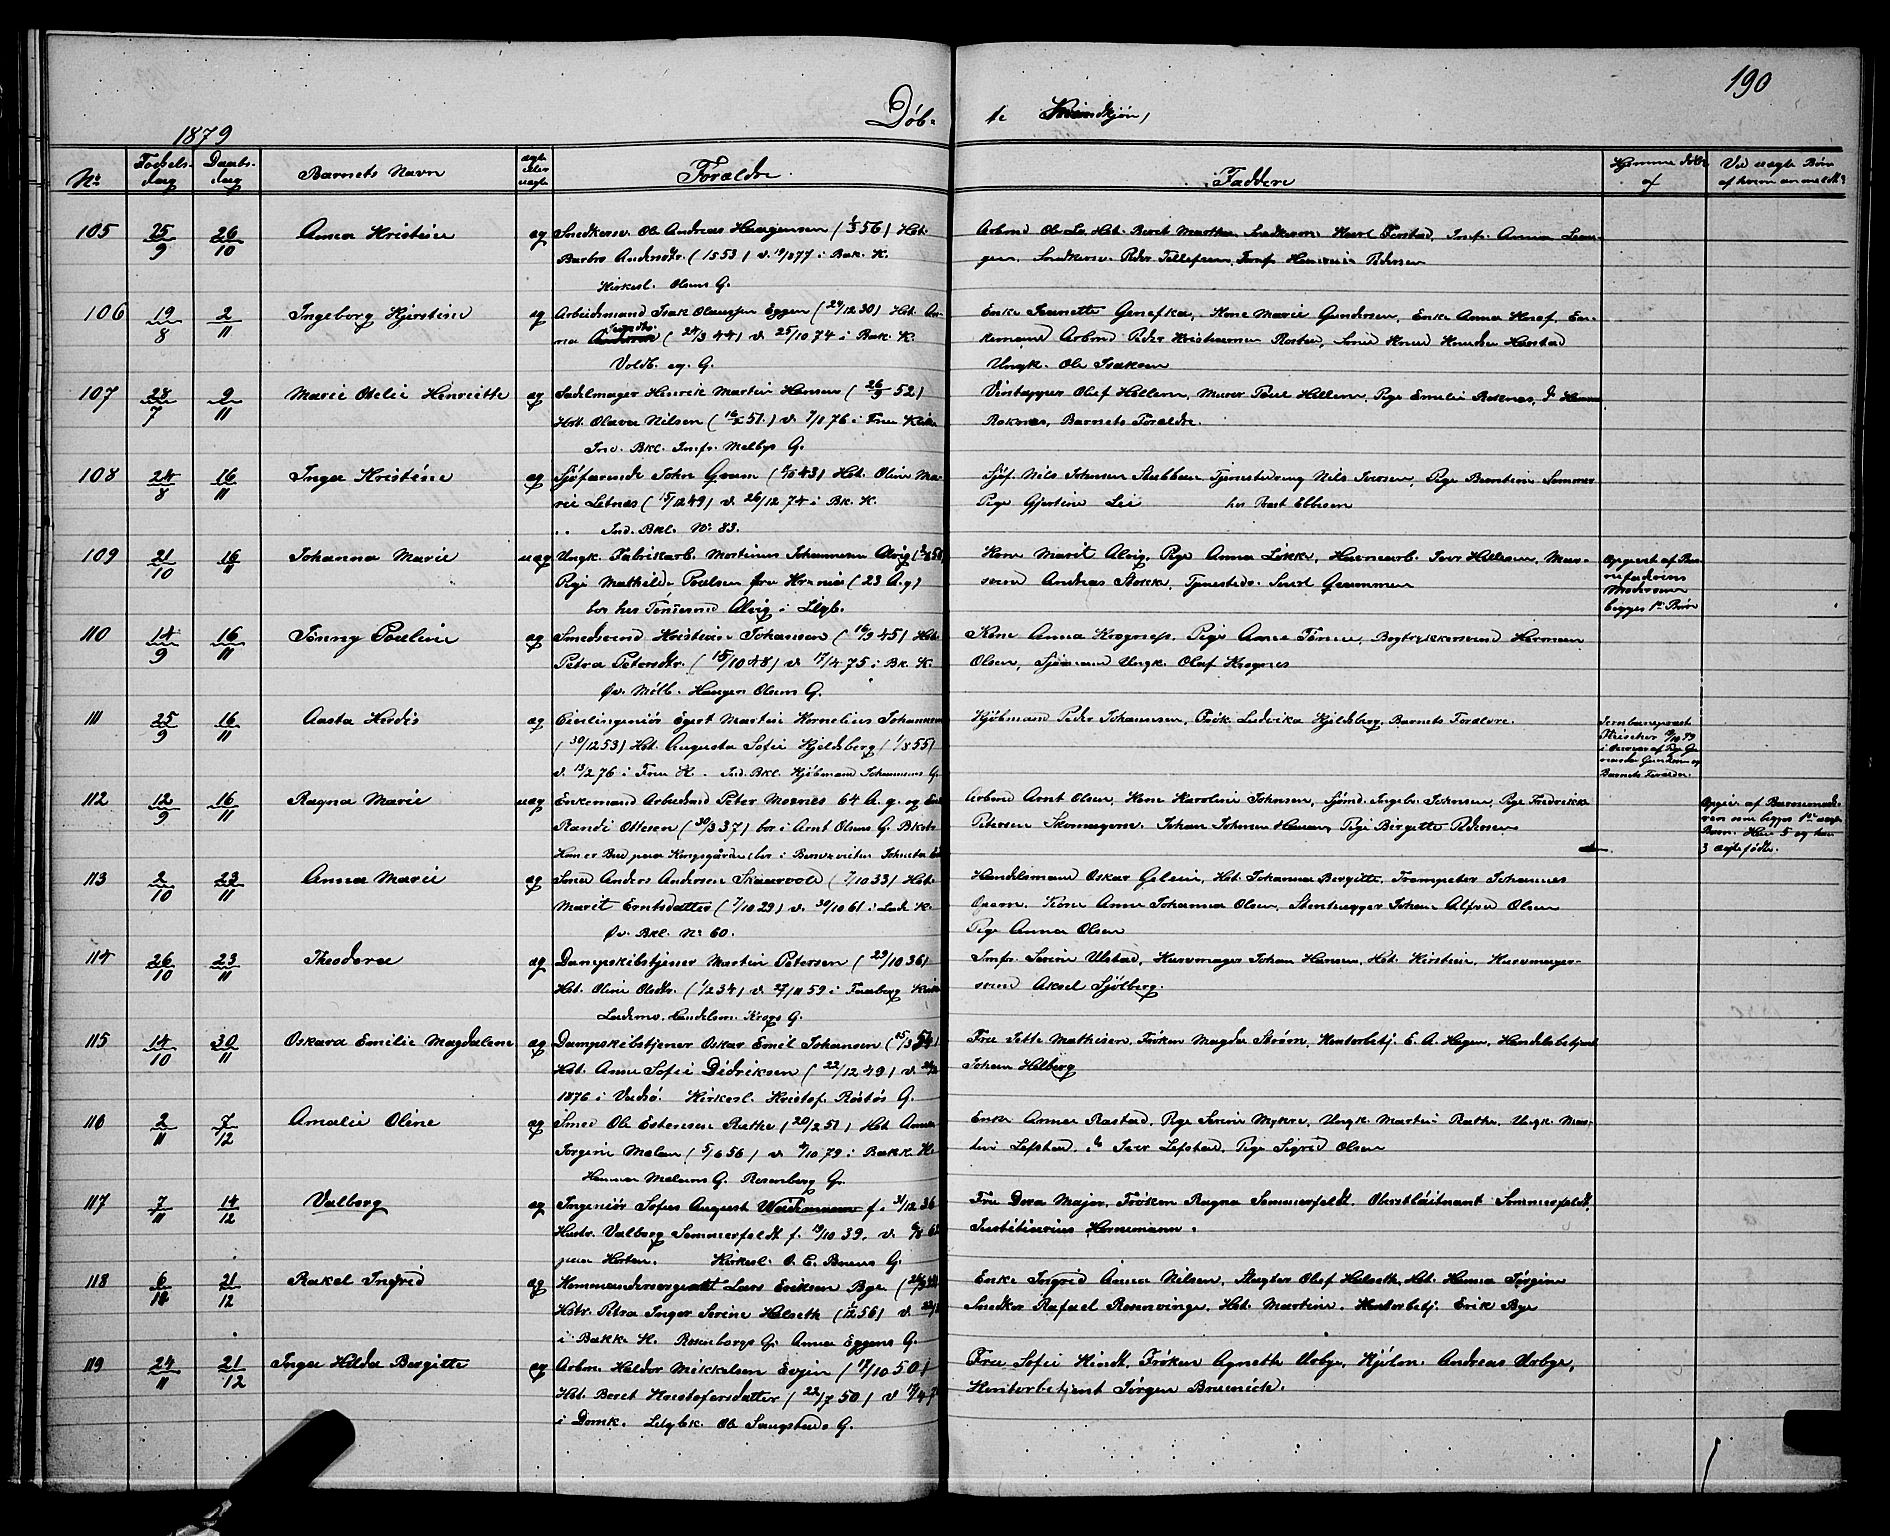 190
Døb- te Kvindkjøn,
1879
No Fødsels- dag Daabs- dag Barnets Navn ægte eller uægte Forældre Faddere Hjemme døbt af Ved uægte Børn af hvem anmeldt
105 25/9 26/10 Anna Kristine æg Snedkersv. Ole Andreas Haagensen 56) Hst.
Barbro Andersdtr. (1553) v. 877 i Bak. K.
Kirkesl. Olsens G.
Arbmd Ole Hst. Berit Martha, Snedkersv. Karl Fiestad, Jnsf. Anna
Snedkersv. Peder Tellefsen, Jnsf. Pedersen
106 19/8 2/11 Ingeborg Kjerstine æg Arbeidsmand Isak Olaussen Eggen (29/12 30) Hst. An-
na (24/3 44) v. 25/10 74 i Bak. K.
Voldb. eg. G.
Enke Jeanette Genefka, Kone Marie Gundersen, Enke Anna En-
kemand Arbmd Peder Kristiansen Smed Knud Knudsen
Ungk. Ole Isaksen
107 28/7 9/11 Marie Otelie Henriette æg Sadelmager Henrik Martin Hansen (26/9 52)
Hst. Olava Nilsen (16/5 51.) v. 76 i Frue Kirke
Ind. Bkl. Jnsfr. Melbys G.
Vintapper Olaf Hellem, Murer Hellem, Pige Emelie Roknæs, do
Roknæs, Barnets Forældre.
108 24/8 16/11 Inga Kristine æg Sjöfarende John Gram 43) Hst. Oline Ma-
rie Letnæs (15/12 49) v. 26/12 74 i Bk. K.
Ind. Bkl. No 83.
Sjöf. Nils Johnsen Stubban Tjenestedreng Nils Iversen, Pige Berntine
Pige Gjertine Lei hos Prost Ebbesen
109 21/10 16/11 Johanna Marie uæg Ungk. Fabrikarb. Martinus Johannesen Alvig
Pige Mathilde Poulsen fra Kr.nia (23 A. g)
bor hos Alvig i Ligb.
Kone Marit Alvig, Pige Anna Løkke, Havnearb. Iver Hellesen, Mur-
svend Andreas Stokke, Tjenestedr. Sivert Grammen
Opgivet af Bar-
nefaderens
Moder
begges 1ste Børn
110 14/9 16/11 Jenny Pouline æg Smedsvend Kristian Johansen (16/9 45) Hst.
Petra Petersdtr. (15/10 48) v. 17/4 75 i Bk. K.
Øv. Mölb. Haugen Olsens G.
Kone Anna Krognes, Pige Anna Bogtrykkersvend Herman
Olsen, Sjømand Ungk. Olaf Krognes
111 25/9 16/11 Aasta Herdis æg Civilingeniör Egert Martin Kornelius Johannessen
(30/12 53) Hst. Augusta Sofie Kjeldsberg (1/8 55)
v. 13/2 76 i Frue K. Ind. Bkl. Kjöbmand Johannesens G.
Kjöbmand Peder Johannsen, Frøk. Ludvika Kjeldsberg, Barnets Forældre.
Jernbaneprest
10 79
Barnets Forældre.
112 12/9 16/11 Ragna Marie uæg Enkemand Arbeidsmd Peter Mosnes 64 A. g. og Enke
Randi Ottesen (30/3 37) bor i Arnt Olsens G. Bksb.
Han er Bud paa Kongsgården bor i
Arbmd Arnt Olsen, Kone Karoline Johnsen, Sjømd. Ingebr. Johnsen, Pige Fredrikke
Petersen Skomagersv. Johan Johnsen Pige Birgitte Pedersen
Opgiv. af Barnemode-
ren som begges 1ste uægte
Barn. Han 5 og hun
3 ægtefødte.
113 2/10 23/11 Anna Marie æg Smed Anders Andersen Skaarvold (7/10 33) Hst.
Marit Erntsdatter (7/10 29) v. 30/10 61 i Lade K.
Øv. Bkl. No 60.
Handelsmand Oskar Gelein, Hst. Johanna Bergitte, Trompeter Johannes
Kone Anne Johanna Olsen, Stenhugger Johan Alfred Olsen
Pige Anna Olsen
114 26/10 23/11 Theodora æg Dampskibstjener Martin Petersen (23/10 36)
Hst. Oline Olsdtr. (1/2 34) v. 27/11 59 i Kirke
Lademo. Handelsm. Krogs G.
Jmfr. Serine Ulstad, Husmager Johan Hansen, Hst. Kirstine,
svend Aksel Sjölberg.
115 14/10 30/11 Oskara Emilie Magdalene æg Dampskibstjener Oskar Emil Johansen (25/3 54)
Hst. Anna Sofie Didriksen (22/12 49) v.
1876 i Vadsö. Kirkesl. Kristof. Röstös G.
Frue Jette Mathisen, Frøken Magda Strøm, Kontorbetj. E. A. Hagen, Handelsbetjent
Johan Helberg
116 2/11 7/12 Amalie Oline æg Smed Ole Estensen Rathe (20/2 51) Hst. Anna
Jörgine Melan (5/6 56) v. 10 79 i Bakk. K.
Hanna Melans G. Rosenborg G.
Enke Anna Rostad, Pige Serine Myhre, Ungk. Martin Rathe, Ungk. Mar-
tin Lefstad, do Iver Lefstad, Pige Sigrid Olsen
117 7/11 14/12 Valborg æg Ingeniör Sofus August Weidemann f. 31/12 36
Hustr. Valborg Sommerfeldt f. 19/10 39. v.
paa Horten. Kirkesl. O. E. Bruuns G.
Frue Dora Major, Frøken Ragna Sommerfeldt, Oberstlöitnant Sommerfeldt,
Justitiarius Hornemann.
118 6/11 21/12 Rakel Ingrid æg Kommandersergeant Lars Eriksen Bye
Hstr. Petra Inger Serine Halseth 56) v.
i Bakk. K. Rosenborgs G. Anna Eggens G.
Enke Ingrid Anna Nilsen, Slagter Olaf Halseth, Hst. Hanna Jørgine
Snedker Rafael Rosenvinge, Hst. Martine, Kontorbetj. Erik Bye
119 24/11 21/12 Inga Hilda Bergitte æg Arbm. Haldor Mikkelsen Evjen 10 50)
Hst. Beret Kristofersdatter (22/7 50) v.
i Domk. Lilgbk. Ole Saugstads G.
Frue Sofie Hindt, Frøken Agnette Usbye, Kjölm. Andreas Usbye,
Kontorbetjent Jörgen Brunick.